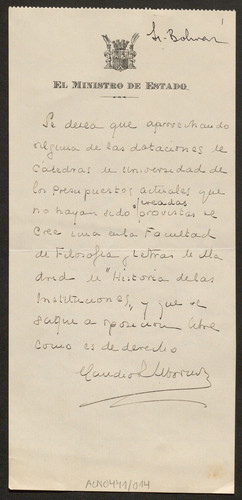 1
Sr. Bolivar
EL MINISTRO DE ESTADO.
Se desea que aprovechando
alguna de las dotaciones de
Cátedras de Universidad de
los presupuestos actuales que
creadas
no hayan sido provistas se
cree en la Facultad
de Filosofía y Letras de Ma
drid la "Historia de las
Instituciones" y que se
saque a oposición libre
como es de derecho
Claudio S. Albornoz
ACN0441/014